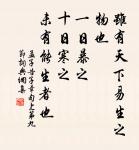 雖有天下易生之
物也
一日暴之
十日寒之
未有能生者也
孟子告子章句上第九
節詞典網集